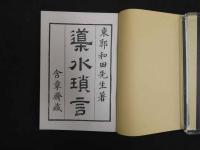 東郭和田先生著
導水瑣言
含章齋藏